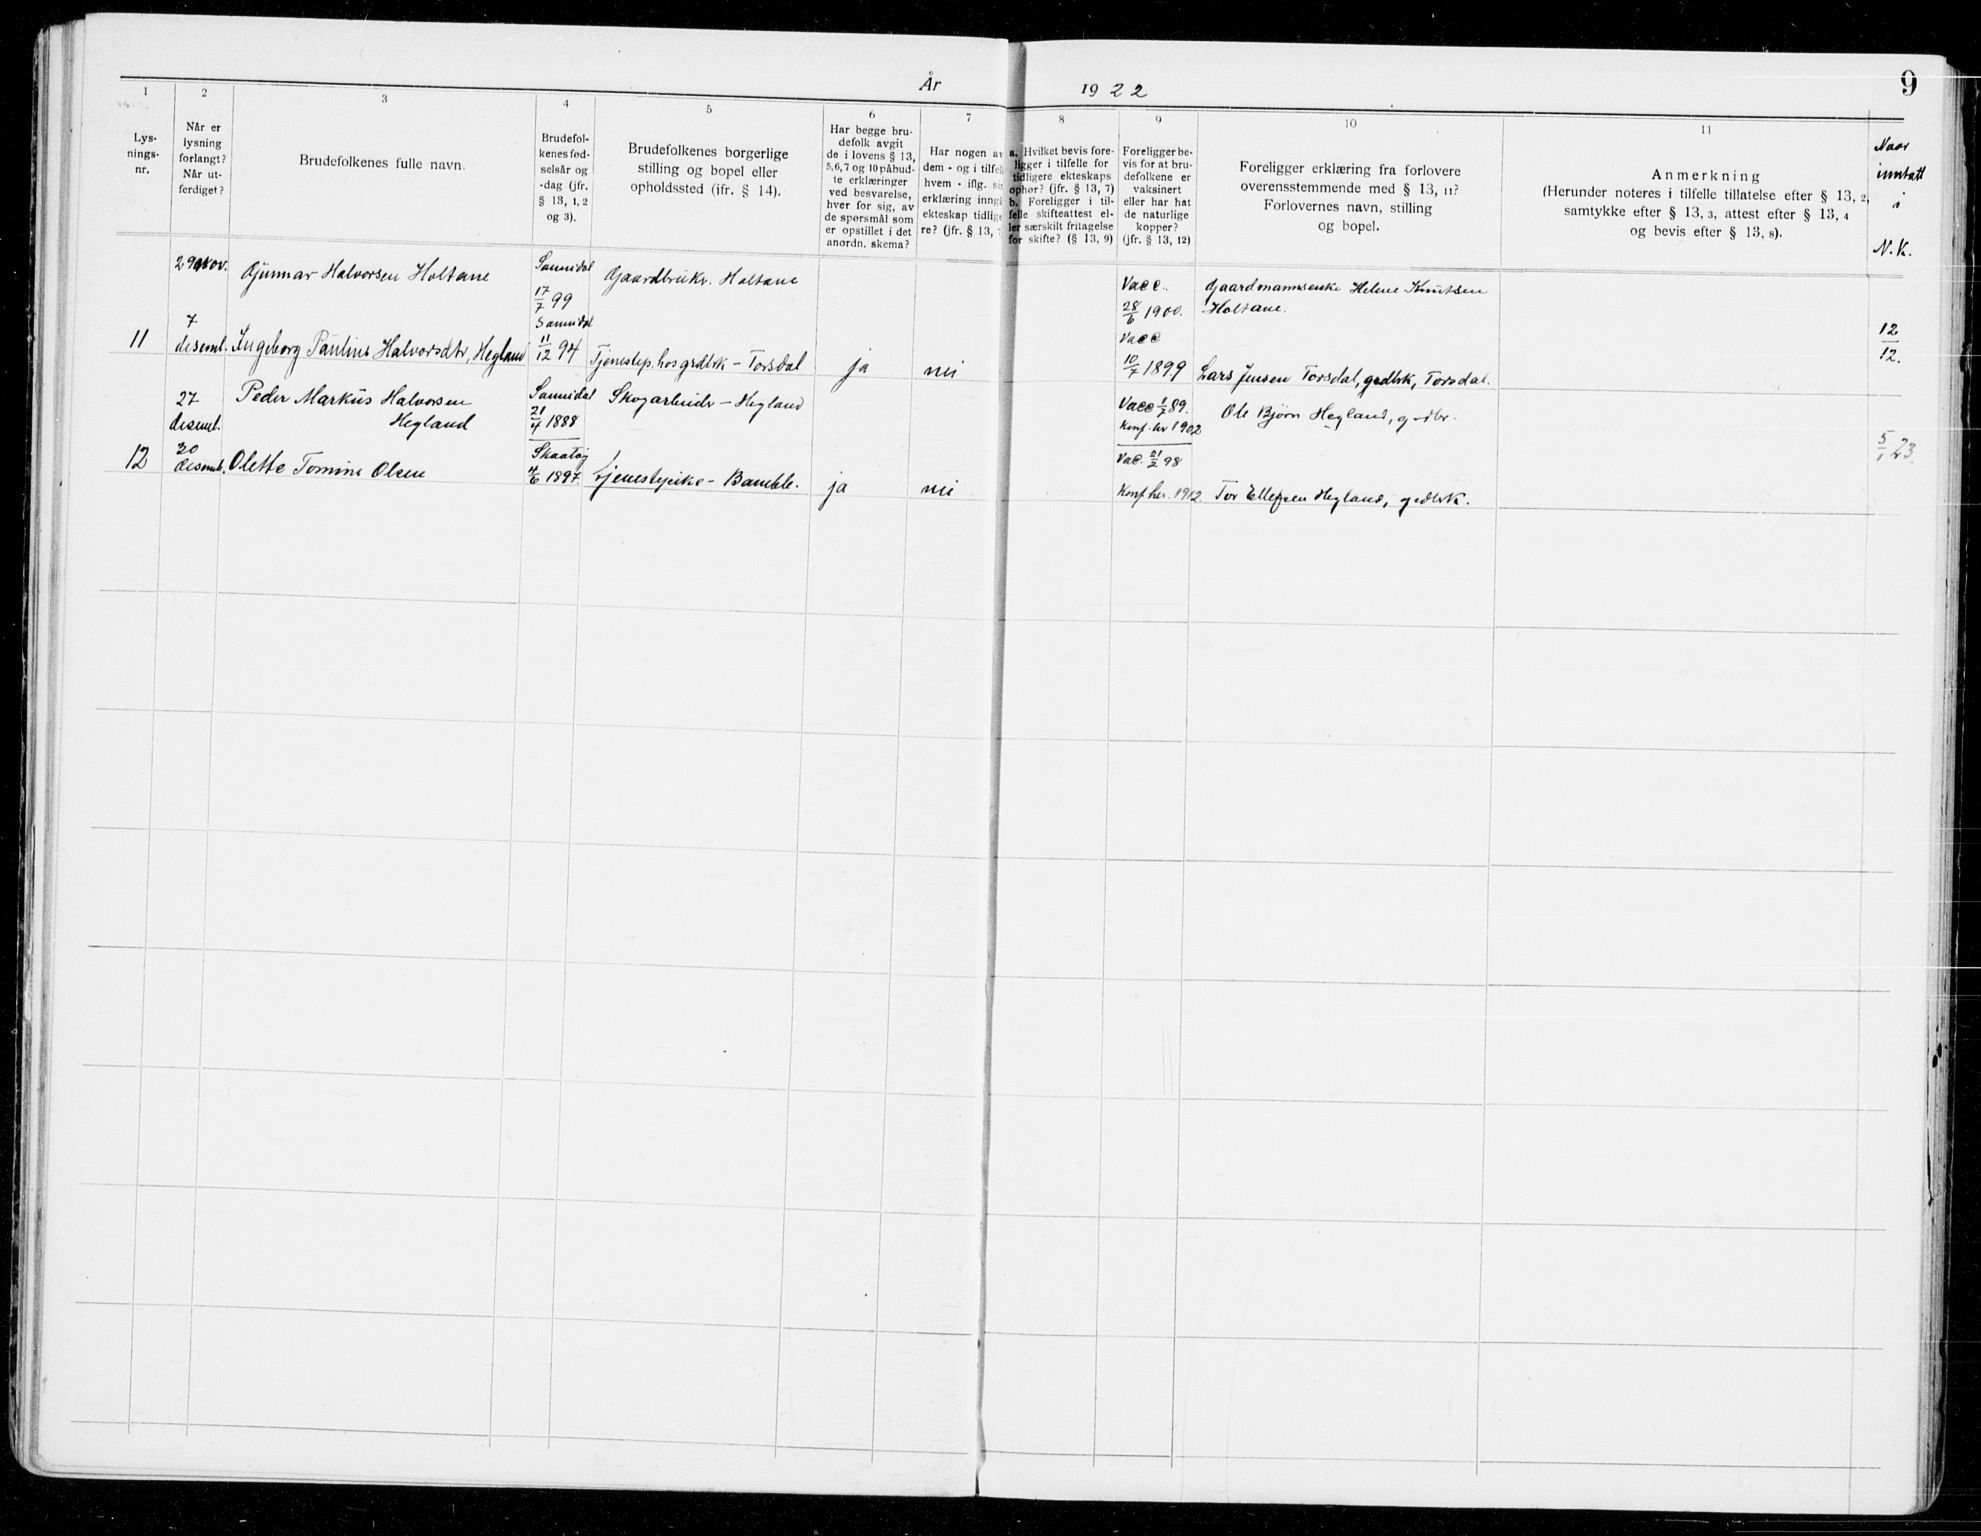 År 1922
9
1
Lys-
nings-
nr.
2
Når er
lysning
forlangt?
Når ut-
ferdiget?
3
Brudefolkenes fulle navn.
4
Brudefol-
kenes fød-
selsår og
-dag (jfr.
§ 13, 1, 2
og 3).
5
Brudefolkenes borgerlige
stilling og bopel eller
opholdssted (ifr. § 14).
6
Har begge bru-
defolk avgit
de i lovens § 13,
5, 6, 7 og 10 påbud-
te erklæringer
ved besvarelse,
hver for sig, av
de spørsmål som
er opstillet i det
anordn. skema?
7
Har nogen av
dem - og i tilfel
hvem - iflg. si
erklæring inng
ekteskap tidlig
re? (jfr. § 13, 7
8
a. Hvilket bevis fore-
ligger i tilfelle for
tidligere ekteskaps
ophør? (jfr. § 13, 7)
b. Foreligger i til-
felle skifteattest el-
ler særskilt fritagelse
for skifte? (§ 13, 9)
9
Foreligger be-
vis for at bru-
defolkene er
vaksinert
eller har hat
de naturlige
kopper?
(jfr. § 13, 12)
10
Foreligger erklæring fra forlovere
overensstemmende med § 13, 11?
Forlovernes navn, stilling
og bopel.
11
Anmerkning
(Herunder noteres i tilfelle tillatelse efter § 13, 2,
samtykke efter § 13, 3, attest efter § 13, 4
og bevis efter § 13, 8).
Naar
inntatt
i
N.K.
29 nov.
Gunnar Halvorsen Holtane
Sannidal
17/7 99
Gaardbruker. Holtane
Vacc.
28/6 1900.
Gaardmannsenke Helene Knutsen
Holtane.
11
7
desemb.
Ingeborg Pauline Halvorsdtr, Hegland
Sannidal
11/12 94
Tjenestep. hos grdbrk - Torsdal
ja
nei
Vacc
10/7 1899
Lars Jensen Torsdal, grdbrk, Torsdal.
12/12.
27
desemb.
Peder Markus Halvorsen
Hegland
Sannidal
21/4 1888
Skogarbeider - Hegland
Vacc 1/2 89.
Konf. her 1902
Ole Bjørn Hegland, grdbr.
12
30
desemb.
Olette Tomine Olsen
Skaatøy
4/6 1897.
Tjenestepike - Bamble.
ja
nei
Vac. 21/2 98
Konf. her. 1912
Tor Ellefsen Hegland, grdbrk.
5/1 23.